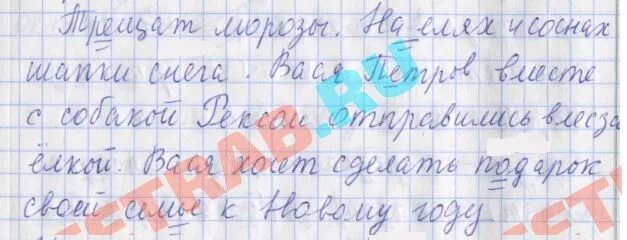 Трещат морозы. На елях и соснах
шапки снега. Вася Петров вместе
с собакой Рексом отправились в лес за
ёлкой. Вася хочет сделать подарок
своей семье к Новому году